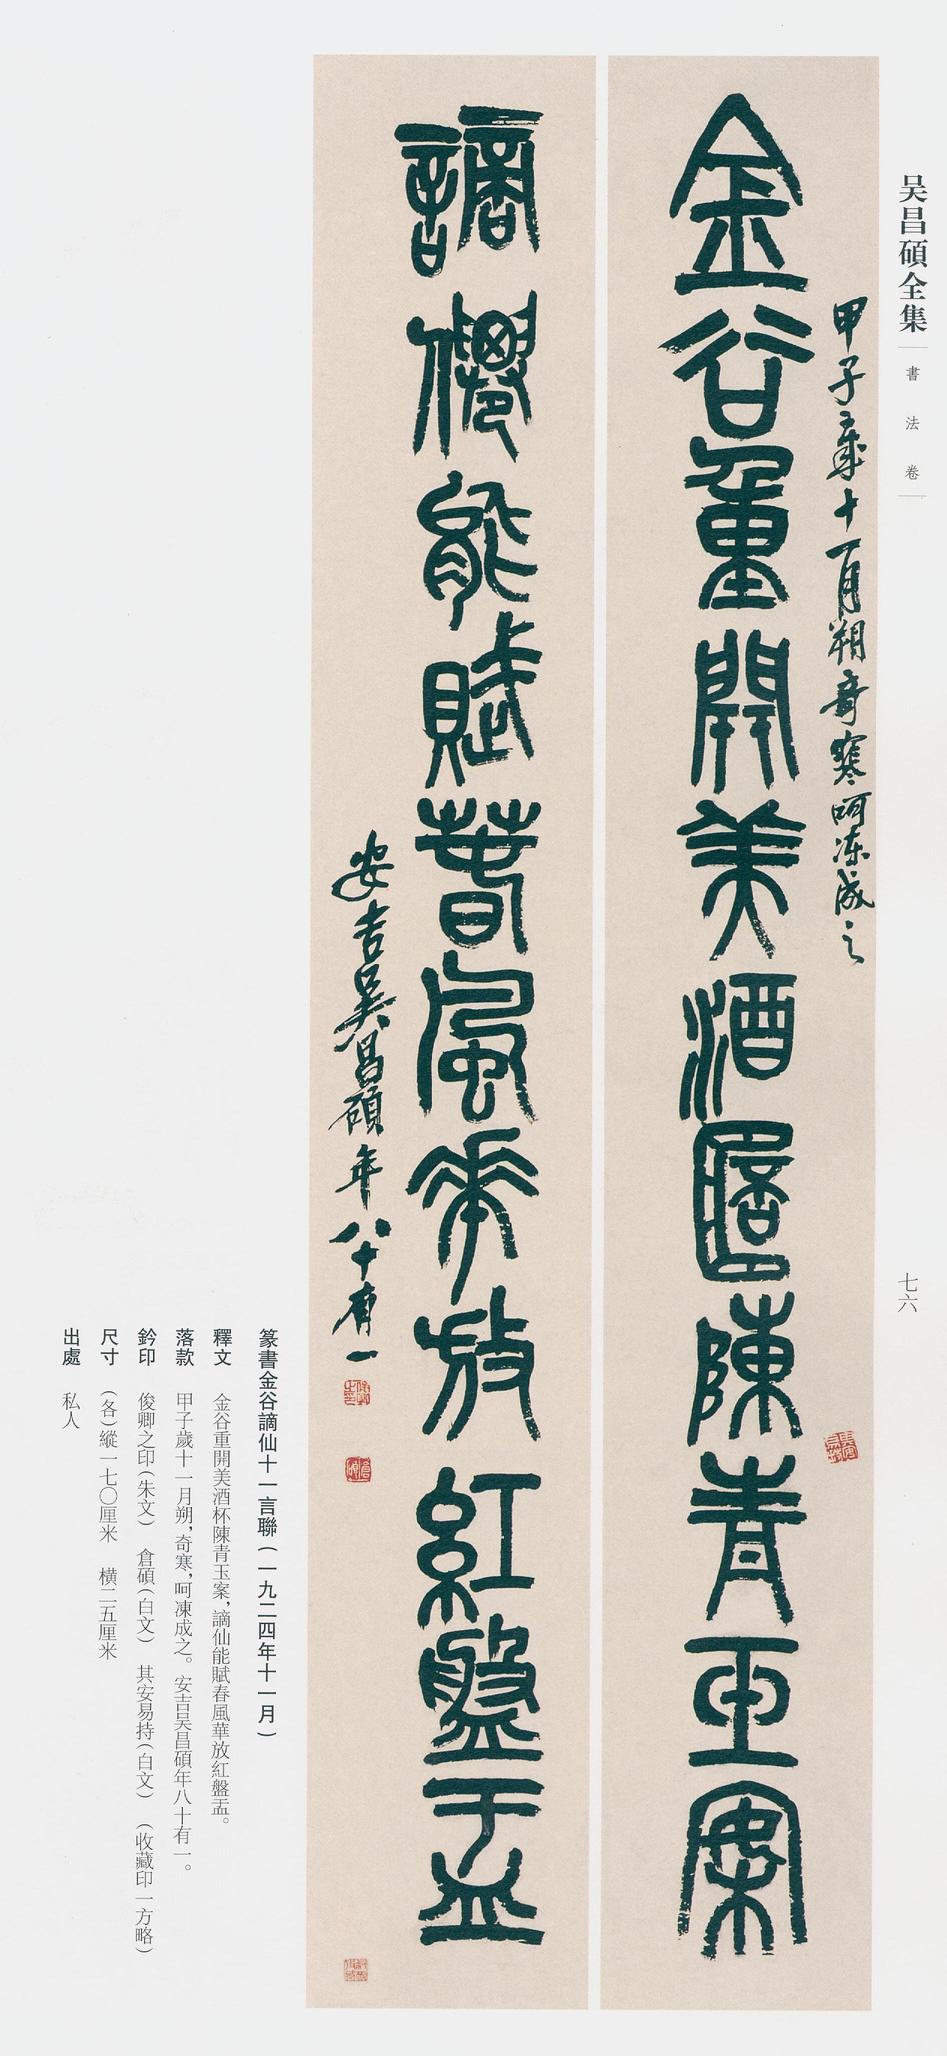 吴昌碩全集
書法卷
七六
甲子歲十一月朔奇寒呵凍成之
金谷重開美酒桮陳青玉案
謫僊能賦春風華放紅盤盂
安吉吳昌碩年八十有一
篆書金谷謫仙十一言聯(一九二四年十一月)
釋文 金谷重開美酒杯陳青玉案,謫仙能賦春風華放紅盤盂。
落款 甲子歲十一月朔,奇寒,呵凍成之。安吉吴昌碩年八十有一。
鈐印 俊卿之印(朱文) 倉碩(白文) 其安易持(白文) (收藏印一方略)
尺寸 (各)縱一七〇厘米 橫二五厘米
出處 私人